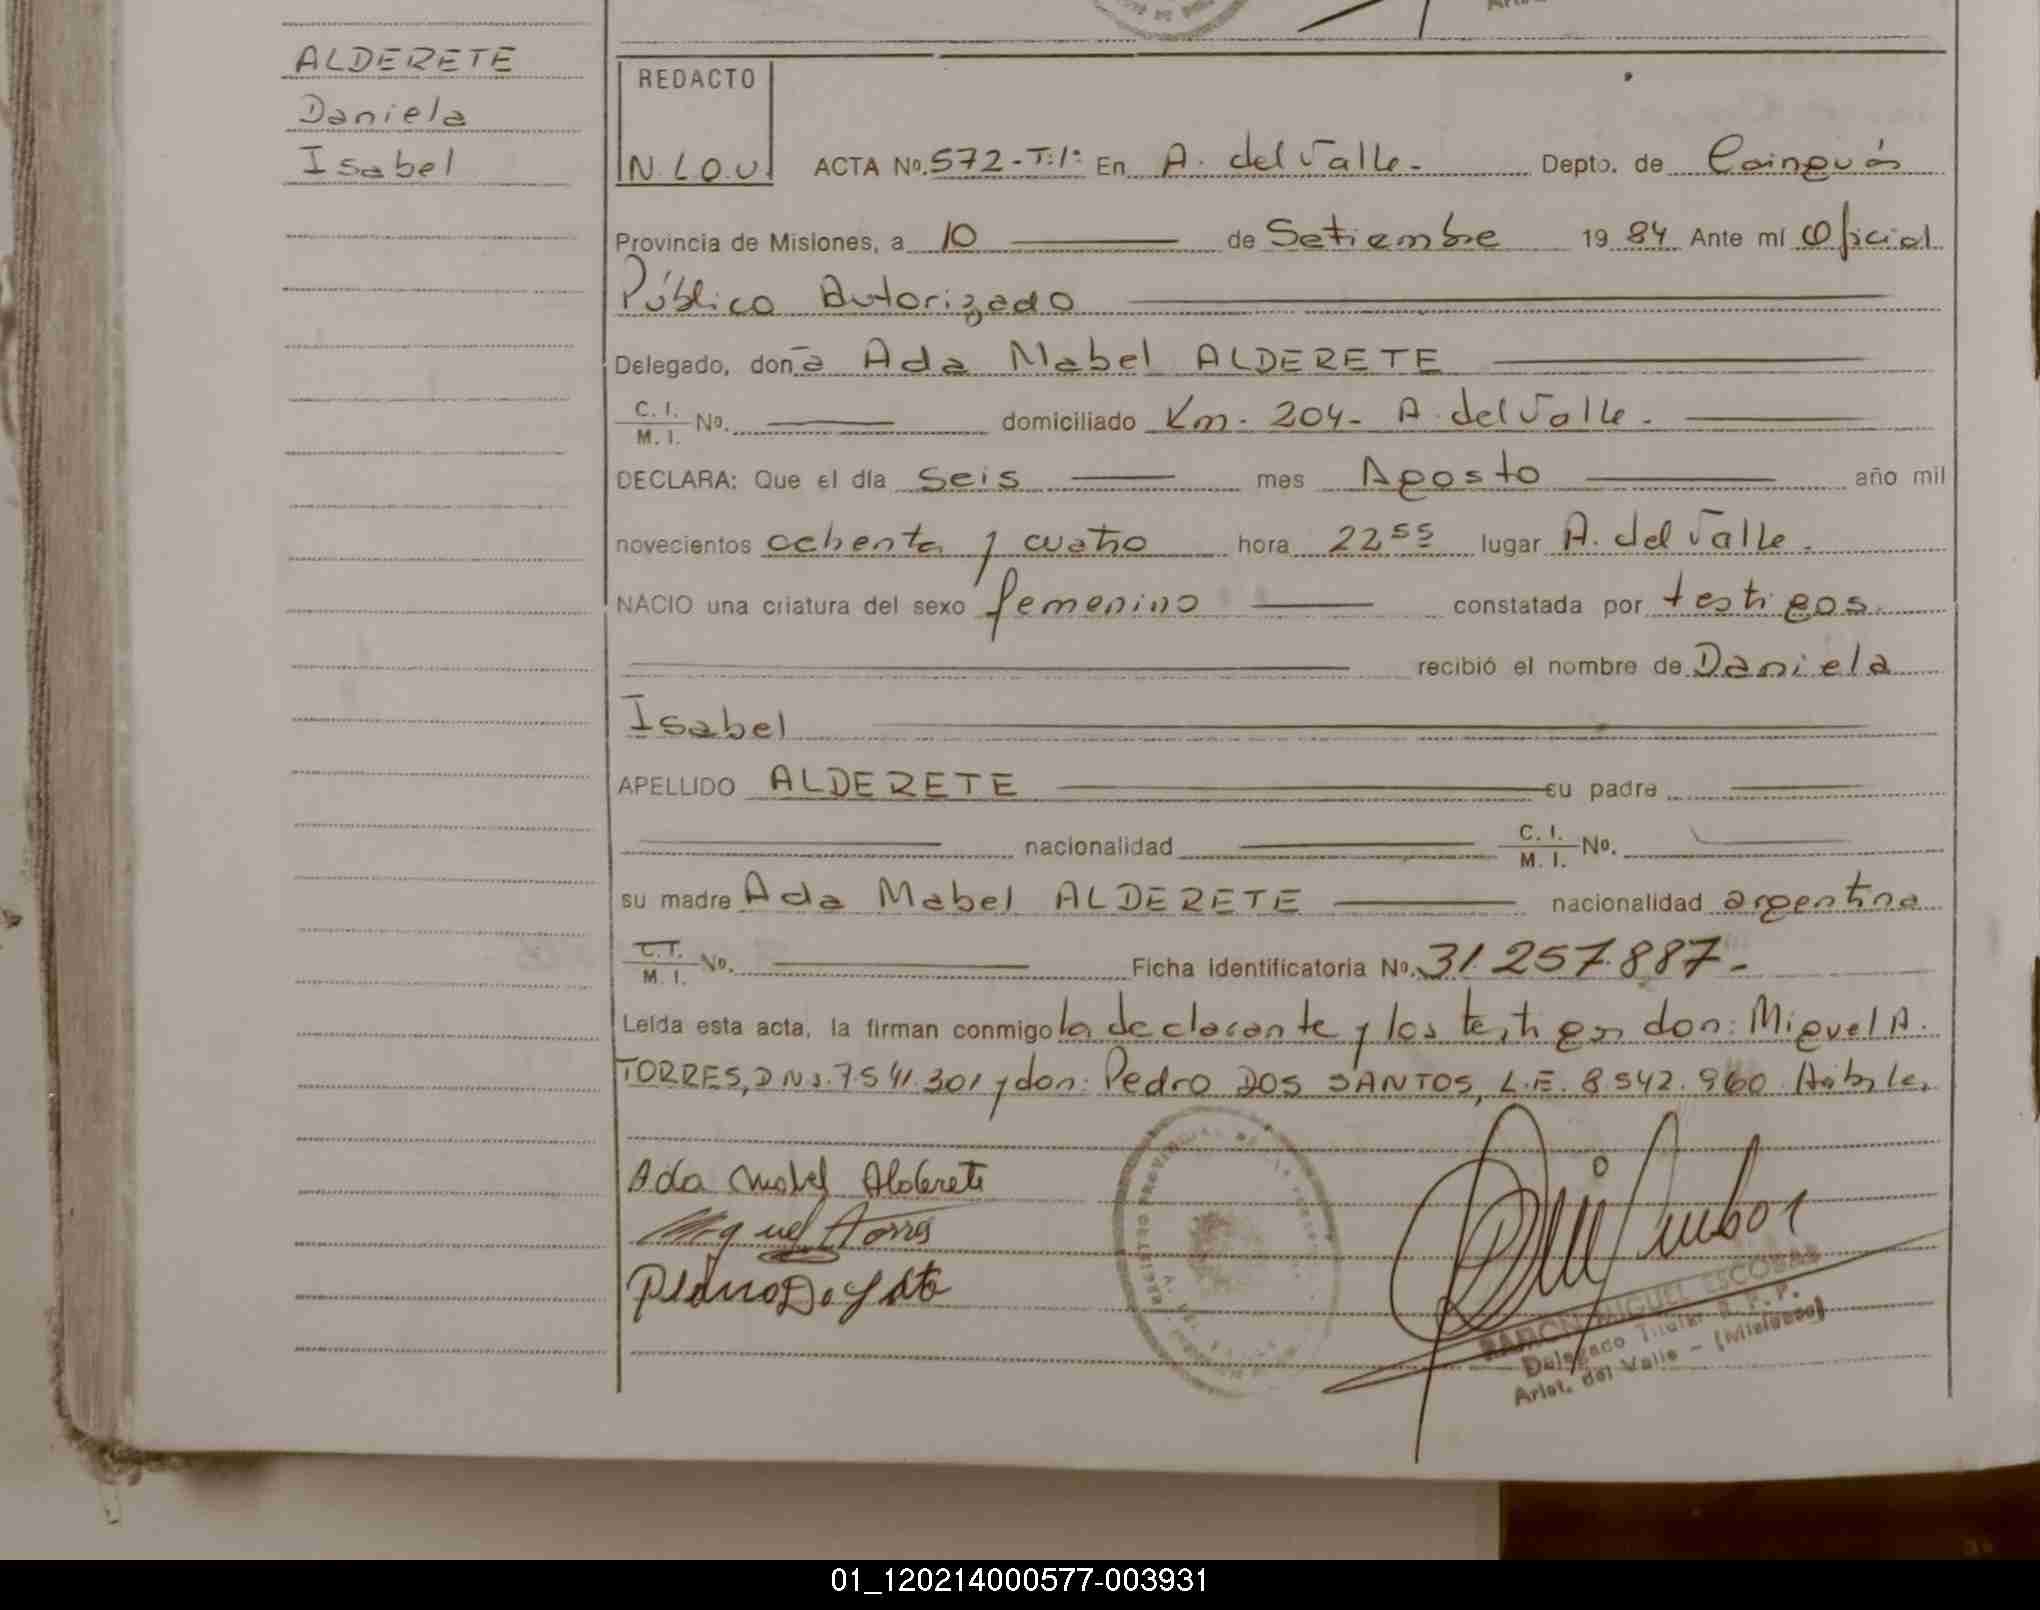 ALDERETE
Daniela
Isabel
REDACTO
N.L.O.U.
ACTA No. 572-T:1º En A. del Valle - Depto. de Cainguás
Provincia de Misiones, a 10 de Setiembre 19 84 Ante mí Oficial
Público Autorizado
Delegado, don a Ada Mabel ALDERETE
C. I. / M. I. No. domiciliado Km. 204- A. del Valle.
DECLARA: Que el día seis mes Agosto año mil
novecientos ochenta y cuatro hora 22 55 lugar A. del Valle.
NACIO una criatura del sexo femenino constatada por testigos.
recibió el nombre de Daniela
Isabel
APELLIDO ALDERETE su padre
nacionalidad C. I. / M. I. No.
su madre Ada Mabel ALDERETE nacionalidad argentina
C. I. / M. I. No. Ficha Identificatoria No. 31.257.887.-
Leída esta acta, la firman conmigo la declarante y los testigos don: Miguel A.
TORRES, DNI. 7.541.301 y don: Pedro DOS SANTOS, L.E. 8.542.960. Hábiles
Ada Mabel Alderete
Miguel A Torres
RAMON MIGUEL ESCOBAR
Delegado Titular R. P. P.
Arist. del Valle - (Misiones)
01_120214000577-003931